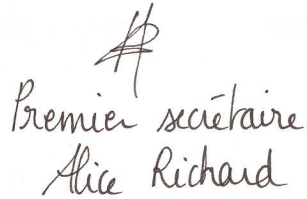 Premier secrétaire
Alice Richard